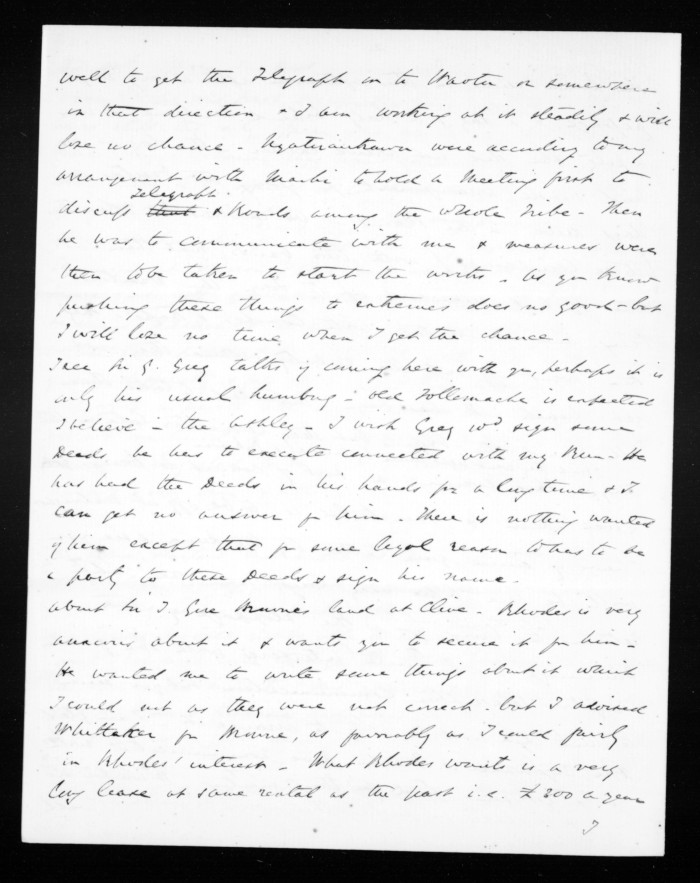 well to get the Telegraph on to Waotu or somewhere
in that direction & I am working at it steadily & will
lose no chance - Ngatiraukawa were according to my
arrangement with to hold a Meeting first to
Telegraph
discuss that & Roads among the whole Tribe - Then
he was to communicate with me & measures were
then to be taken to start the works - As you know
pushing these things to extremes does no good - but
I will lose no time when I get the chance -
I see Sir G. Grey talks of coming here with you, perhaps it is
only his usual humbug - old Tollemache is expected
I believe in the Ashley - I wish Grey wd sign some
Deeds he has to execute connected with my Run - He
has had the Deeds in his hands for a long time & I
can get no answer fr him - There is nothing wanted
of him except that for some legal reason he has to be
a party to these Deeds & sign his name -
about Sir T. Gore Browne's land at Clive - Rhodes is very
anxious about it & wants you to secure it for him -
He wanted me to write some things about it which
I could not as they were not correct - but I advised
Whittaker for Browne, as favorably as I could fairly
in Rhodes' interest - What Rhodes wants is a very
long lease at same rental as the past i.e. £300 a year
I